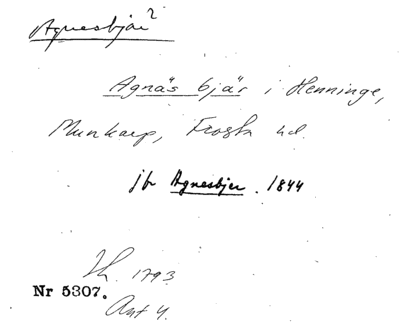 Agnesbjär?
Agnäs bjär i Henninge,
Munkarp, Frosta hd.
jfr Agnesbjer. 1844
1793
Nr 5307.
Ant 4.